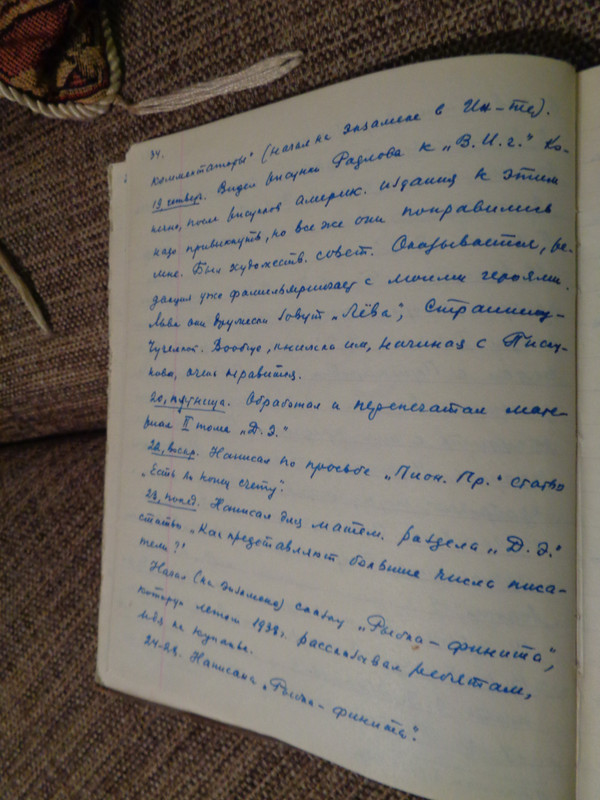 34.
комментаторы" (начал на экзамене в Ин-те).
19, четверг. Видел рисунки Радлова к „В. И. г." Ко-
нечно, после рисунков америк. издания к этим
надо привыкнуть, но все же они понравились
мне. Был художеств. совет. Оказывается, ре-
дакция уже фамильярничает с моими героями.
Льва они дружески зовут „Лёва", Страшилу-
Чучелкой. Вообще, книжка им, начиная с Писку-
нова, очень нравится.
20, пятница. Обработал и перепечатал мате-
риал II тома „Д. Э."
22, воскр. Написал по просьбе „Пион. Пр." статью
„Есть ли конец счету".
23, понед. Написал для матем. раздела „Д. Э."
статью „Как представляют большие числа писа-
тели?"
Начал (на экзамене) сказку „Рыбка-финита",
которую летом 1938 г. рассказывал ребятам,
идя на купанье.
24-28. Написана „Рыбка-финита".